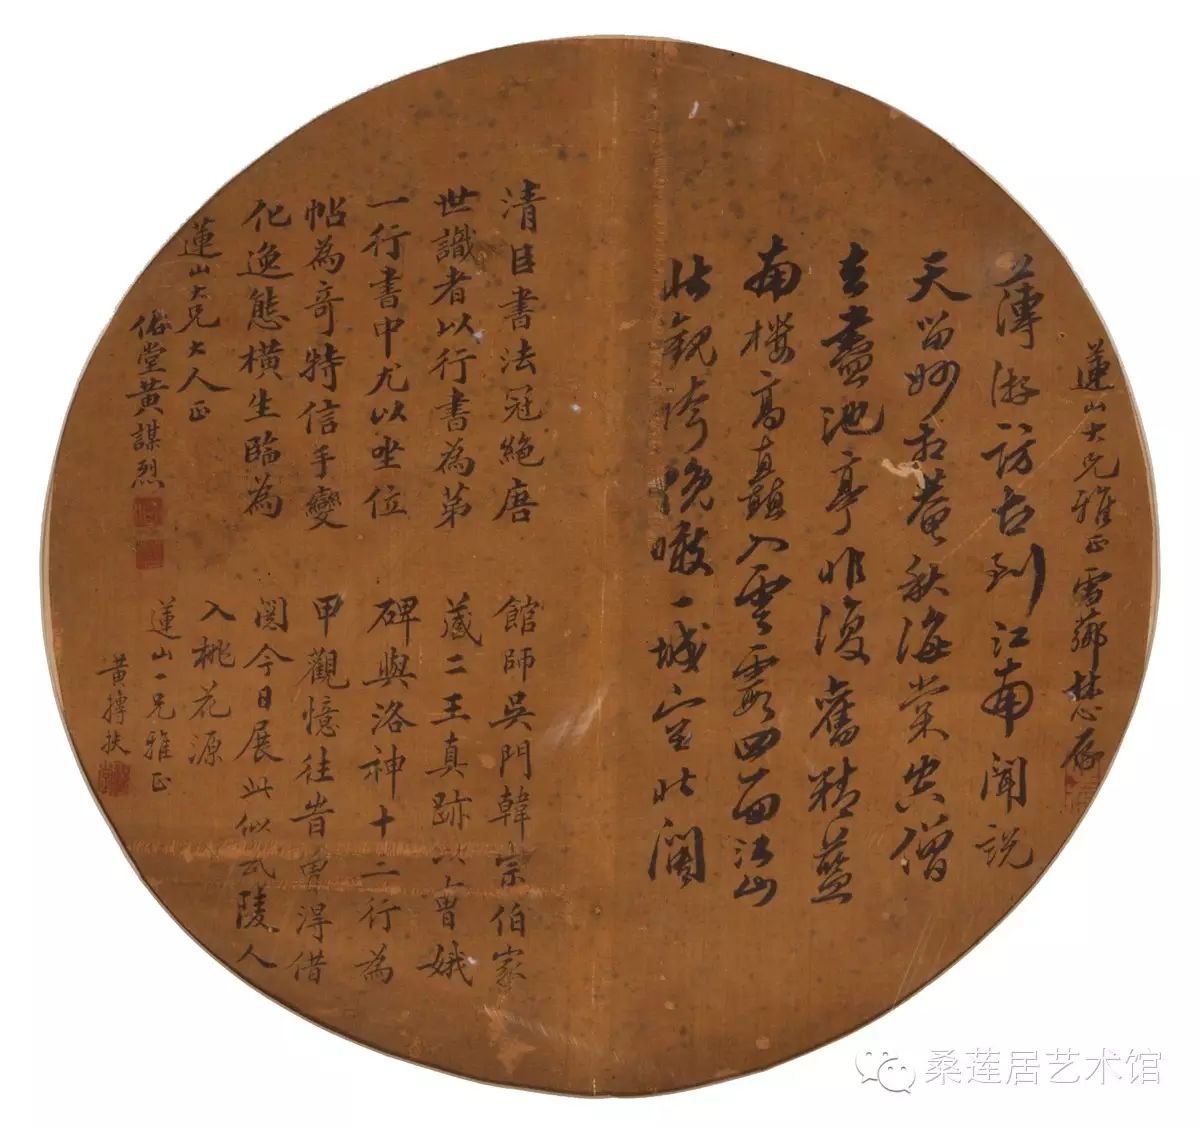 薄游訪古到江南聞説
天留妙相菴秋海棠出僧
去盡池亭非復舊精藍
南樓高矗入雲霞四面江山
此觀誇晚暾一城
蓮山大兄雅正雪薌林
清臣書法冠絶唐
世識者以行書為第
一行書中尤以坐位
帖為奇特信手變
化逸態橫生臨為
蓮山大兄大人正
佑堂黃謀烈
館師吳門韓宗伯家
藏二王真跡以上曹娥
碑與洛神十二行為
甲觀憶往昔曾淂借
閱今日展此似武陵人
入桃花源
蓮山一兄雅正
黃摶扶
桑莲居艺术馆